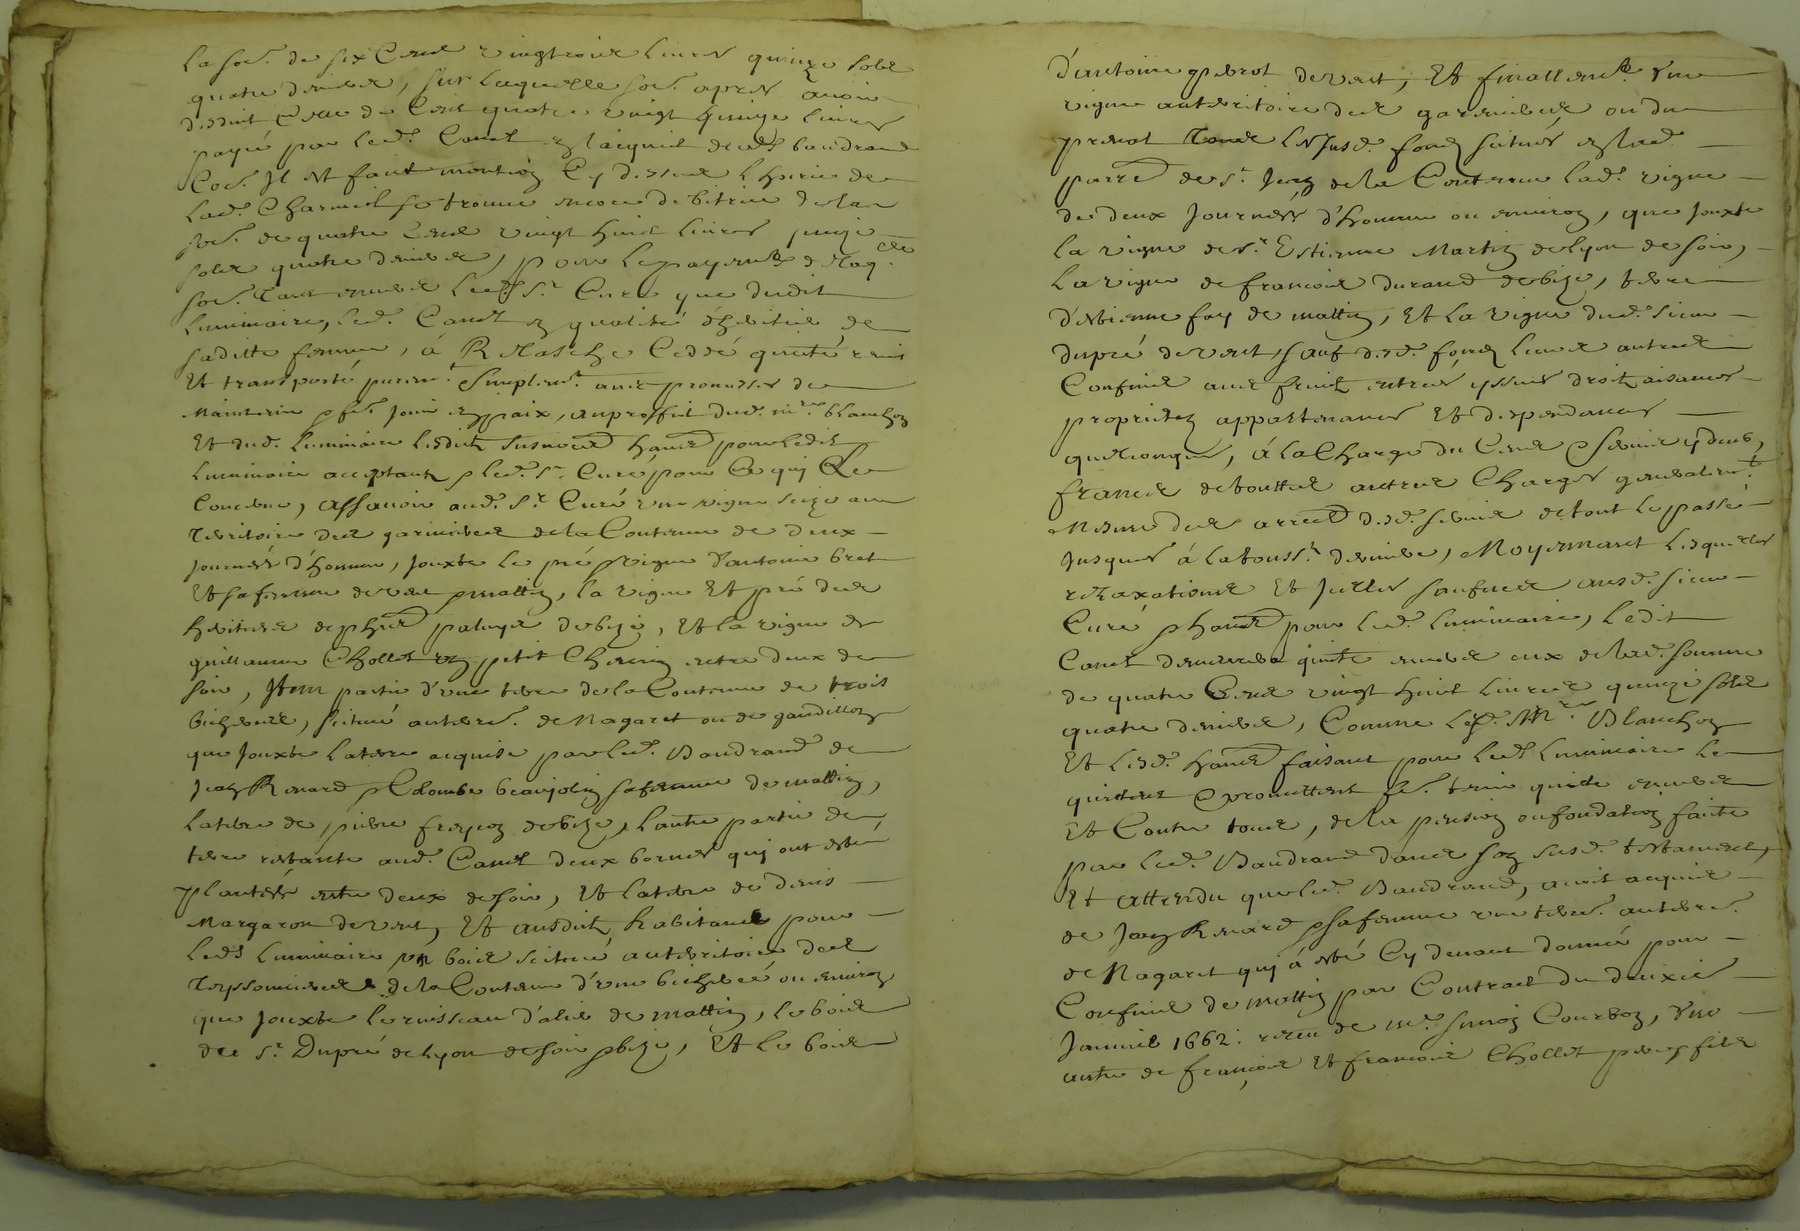 la so.e de six Cens vingttrois livres quinze sols
quatre deniers, sur laquelle so.e apres avoir
deduit Celle de Cent quatre vingt quinze livres
payée par led. Canet Baudrand
Il est fait mention Cy dessus l'hoirie de
lad. se trouve encore debitrice de la
so.e de quatre Cens vingt huit livres quinze
sols quatre deniers, pour le payem.t de laq.elle
so.e tant envers led. S.r Curé que dudit
Luminaire, led. Canet en qualité d'heritier de
saditte femme, à Relasché Ceddé quitté remis
Et transporté purem.t simplem.t avec promesses de
Maintenir jouir en paix, au proffit dud. m.re Blanchon
Et dud. Luminaire lesdits susnommés pour ledit
Luminaire acceptants led. S.r Curé pour Ce qui Le
Concerne, assavoir aud. S.r Curé une vigne scize au
Territoire des garenieres de la Contenue de deux
journées d'homme, jouxte le pré vigne d'antoine bret
Et sa femme de vent matin, la vigne Et pré des
heritiers de de bize, Et la vigne de
guillaume Chollet un petit Chemin entre deux de
soir, Item partie d'une terre de la Contenue de trois
bicherées, scituée au terre. de Magaret ou de gaudillon
que jouxte la terre acquise par led. Baudrand de
Jean Renard Colombe beaujolin sa femme de mattin,
la terre de pierre de bize, l'autre partie de
terre restante aud. Canet deux bornes qui ont esté
plantées entre deux de soir, Et la terre de denis
Margaron de vent, Et ausdits habitans pour
led. Luminaire un bois scitué au territoire des
Teyssonieres de la Contenue d'une bicherée ou environ
que jouxte le ruisseau d'alié de mattin, le bois
des S.r Dupré de lyon de soir bize, Et le bois
d'antoine de vent, Et finallem.t une
vigne au territoire des garenieres ou du
prevot Tous les susd. fonds scitués en lad.
parr.e de S.t Jean de la Contenue lad. vigne
de deux journées d'homme ou environ, que jouxte
la vigne de S.r Estienne Martin de lyon de soir,
la vigne de francois durand de bize, terre
d'estienne fay de mattin, Et la vigne dud. sieur
dupré de vent, sauf desd. fonds leurs autres
Confins avec fruits entrées yssues droits aisances
proprietez appartenances Et dependances
quelconques, à la Charge du Cens servis y deub,
francs de touttes autres Charges generalem.t
Mesme des arrerages desd. servis de tout le passé
jusques à la touss.ts derniere, Moyennant lesquelles
relaxations Et Icelles saufves ausd. sieur
Curé pour led. luminaire, ledit
Canet demeurera quitte envers eux de lad. somme
de quatre Cens vingt huit livres quinze sols
quatre deniers, Comme led. M.re Blanchon
Et lesd. faisant pour led. luminaire le
quittent promettent tenir quitte envers
Et Contre tous, de la pension ou fondation faite
par led. Baudrand dans son susd. testament,
Et attendu que led. Baudrand, avoit acquis
de Jean Renard sa femme une terre. au terre.
de Magaret qui a esté Cy devant donnée pour
Confins de mattin par Contract du deuxie.
Janvier 1662: receu de m.e simon Courbon, Une
autre de françois Et francois Chollet pere fils